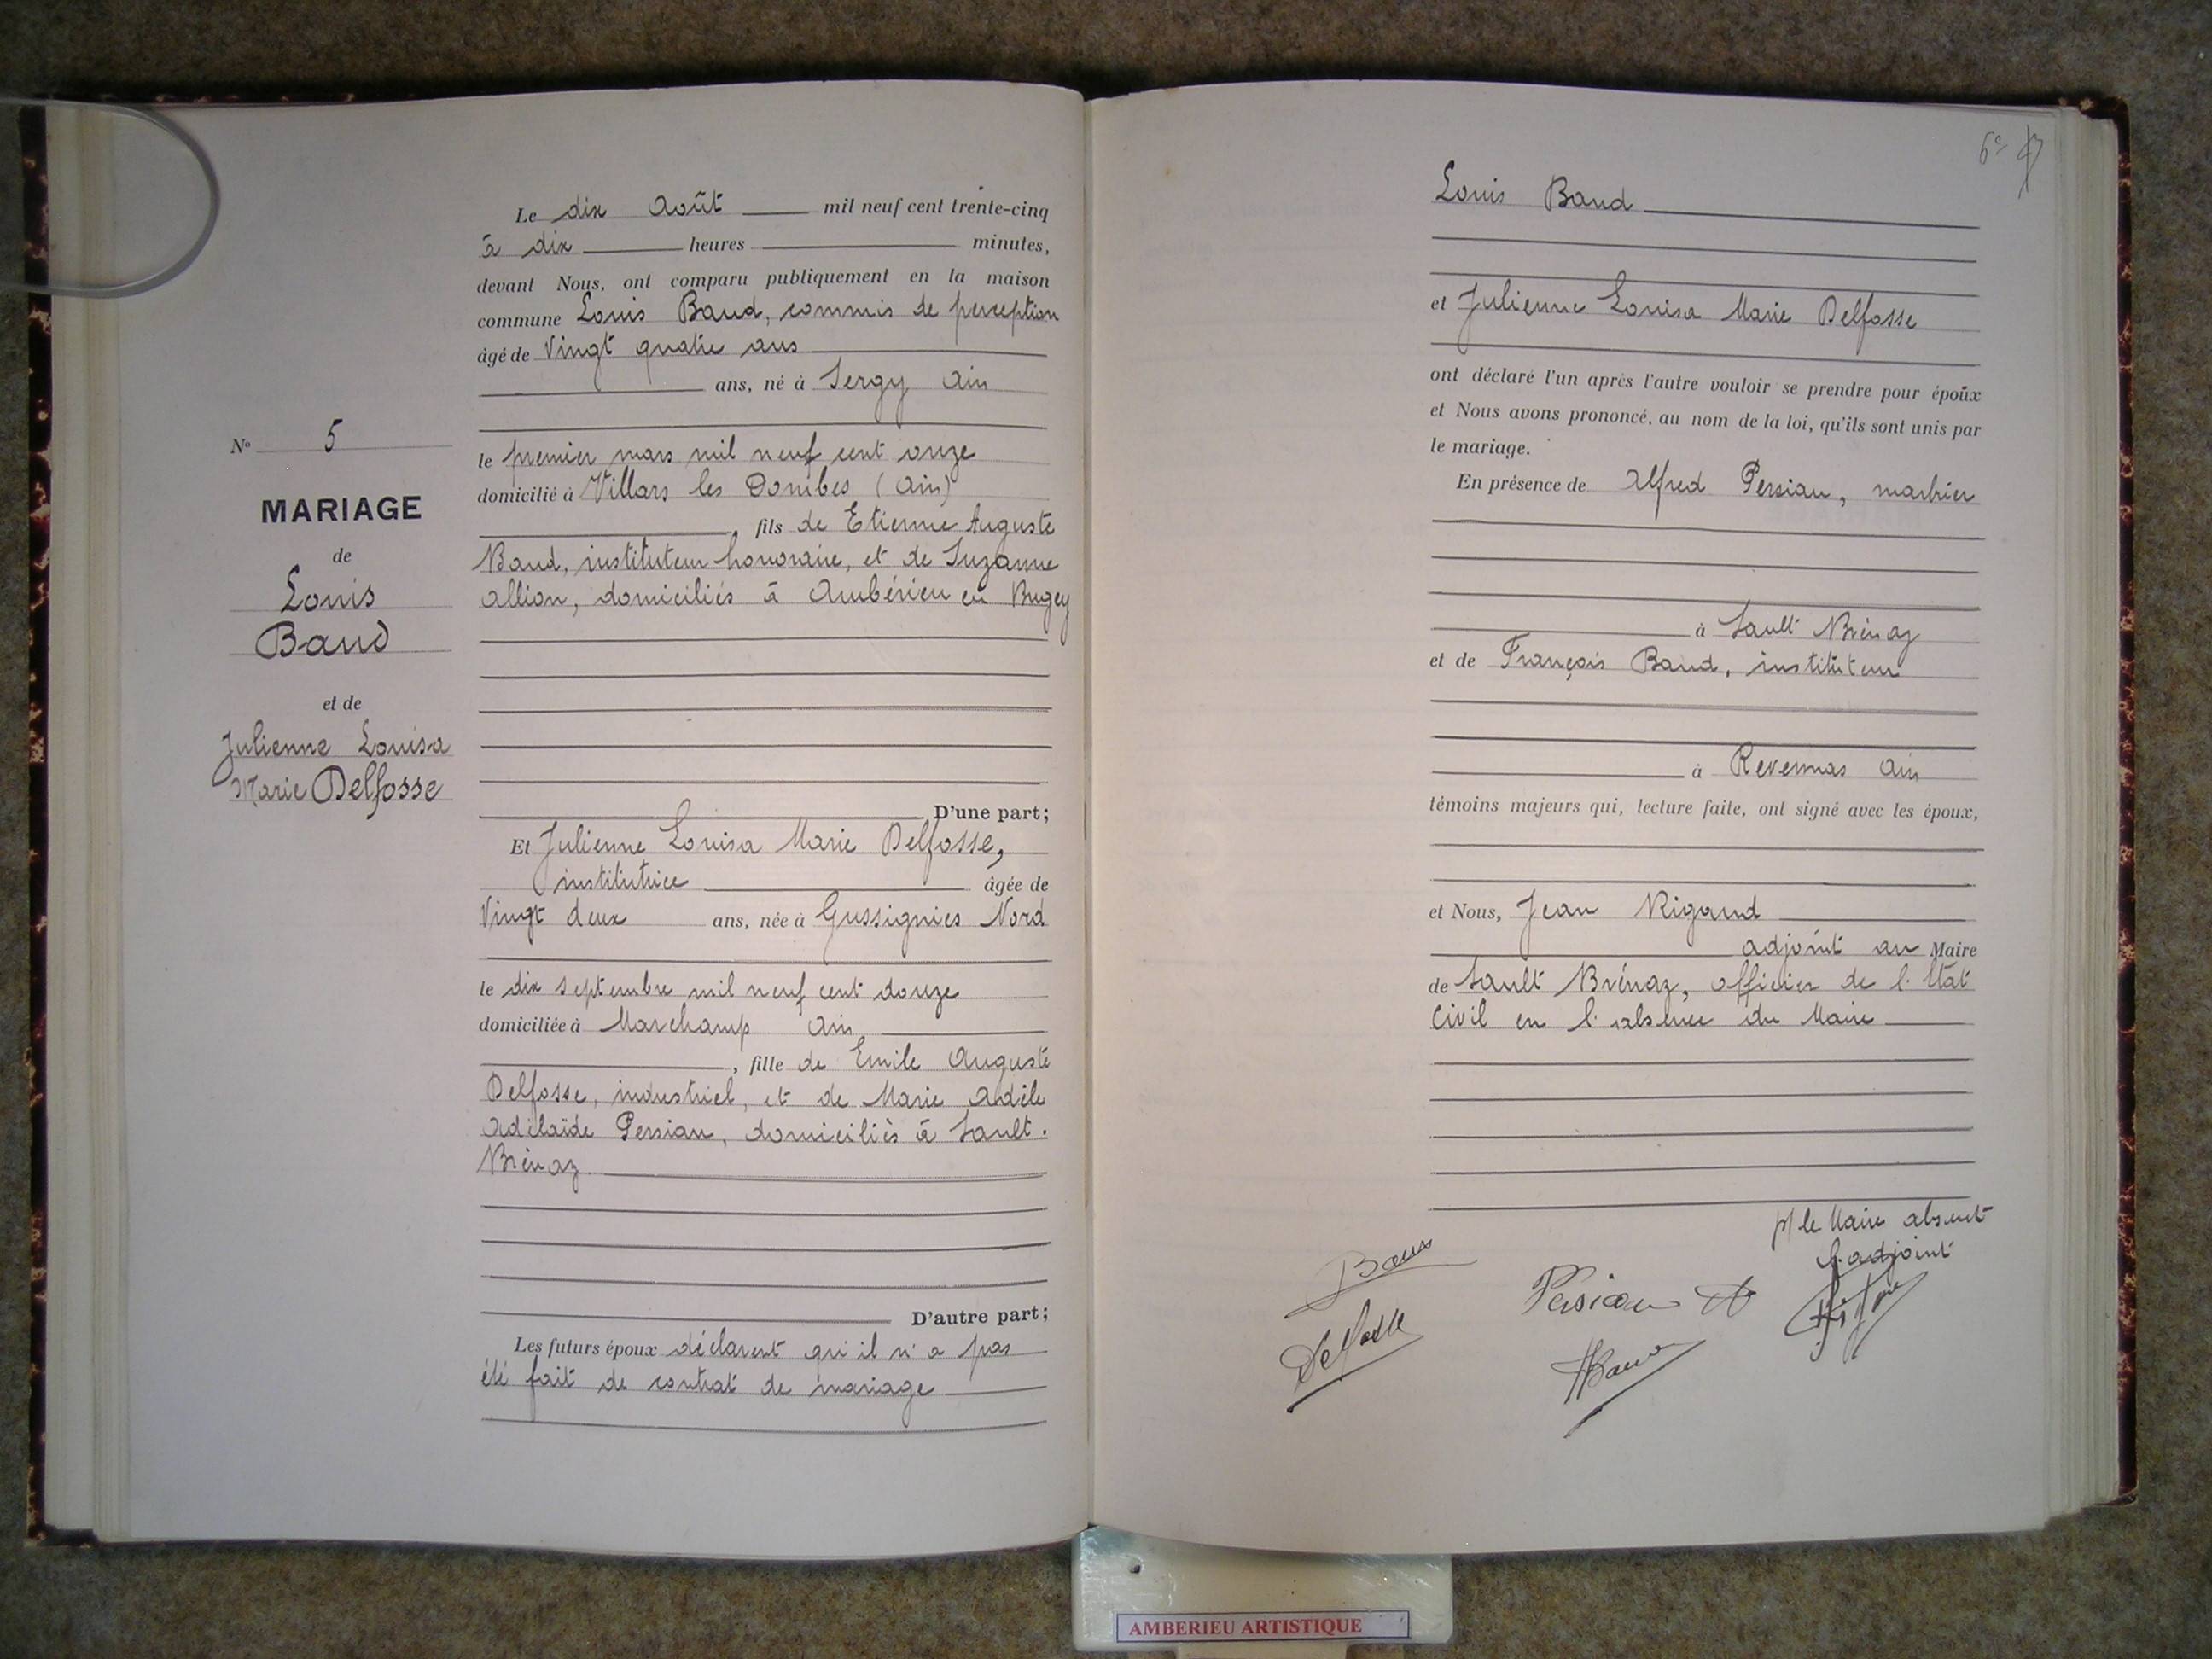 N° 5
MARIAGE
de
Louis
Baud
et de
Julienne Louisa
Marie Delfosse
Le dix Août mil neuf cent trente-cinq
à dix heures minutes,
devant Nous, ont comparu publiquement en la maison
commune Louis Baud, commis de perception
âgé de Vingt quatre ans
ans, né à Sergy Ain
le premier mars mil neuf cent onze
domicilié à Villars les Dombes (Ain)
, fils de Etienne Auguste
Baud, instituteur honoraire, et de Suzanne
Allion, domiciliés à Ambérieu en Bugey
D'une part;
Et Julienne Louisa Marie Delfosse,
institutrice âgée de
Vingt deux ans, née à Gussignies Nord
le dix septembre mil neuf cent douze
domiciliée à Marchamp Ain
, fille de Emile Auguste
Delfosse, industriel, et de Marie Adèle
Adélaïde Persiau, domiciliés à Sault-
Brénaz
D'autre part;
Les futurs époux déclarent qu'il n'a pas
été fait de contrat de mariage
Louis Baud
et Julienne Louisa Marie Delfosse
ont déclaré l'un après l'autre vouloir se prendre pour époux
et Nous avons prononcé, au nom de la loi, qu'ils sont unis par
le mariage.
En présence de Alfred Persiau, marbrier
à Sault Brénaz
et de François Baud, instituteur
à Revonnas Ain
témoins majeurs qui, lecture faite, ont signé avec les époux,
et Nous, Jean Rigaud
adjoint au Maire
de Sault Brénaz, officier de l'Etat
Civil en l'absence du Maire
p/ le Maire absent
l'adjoint
Baud
Delfosse
Persiau A
Baud
AMBERIEU ARTISTIQUE